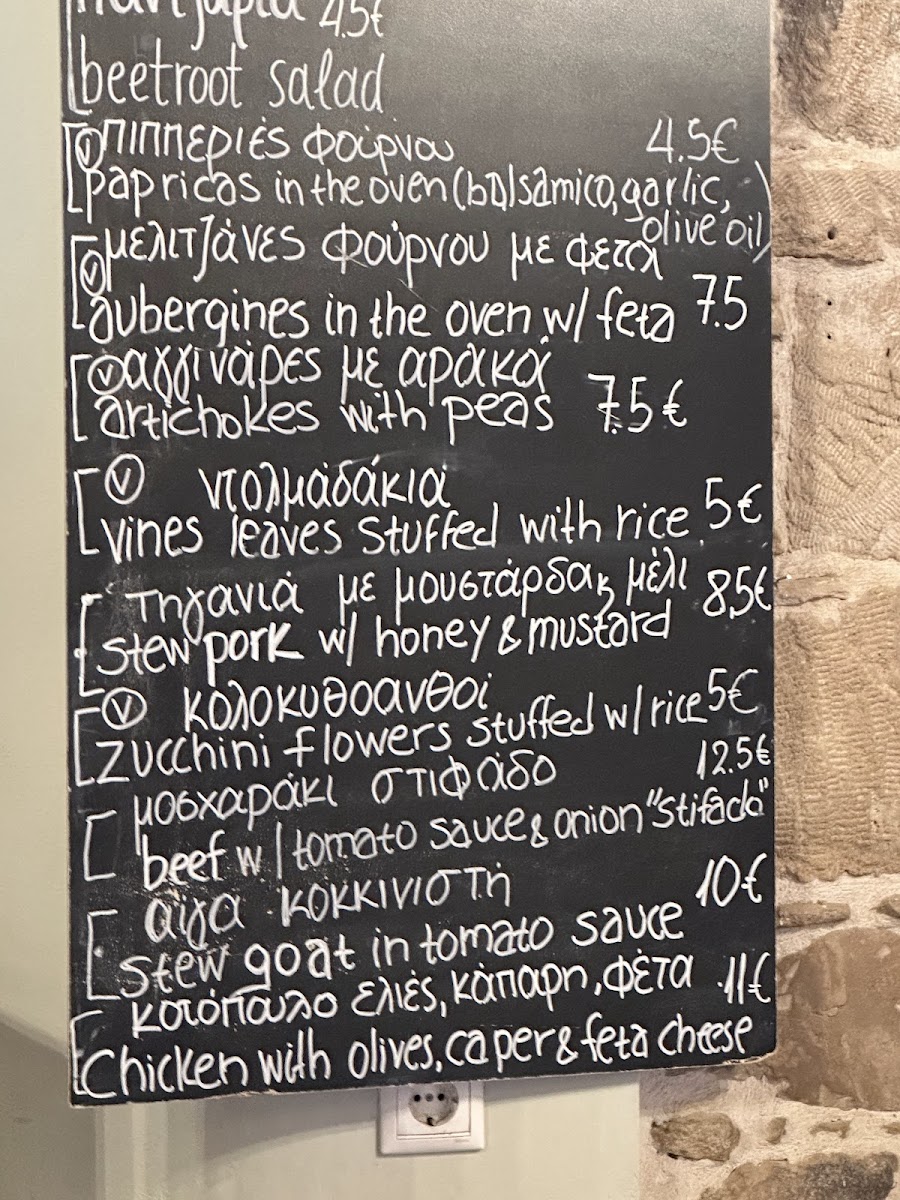 παντζάρια 4.5€
beetroot salad
V πιππεριές φούρνου 4.5€
papricas in the oven (balsamico, garlic,
olive oil)
V μελιτζάνες φούρνου με φετα
aubergines in the oven w/ feta 7.5
V αγγινάρες με αρακά
artichokes with peas 7.5€
V ντολμαδάκια
vines leaves stuffed with rice 5€
τηγανιά με μουστάρδα κ μέλι
stew pork w/ honey & mustard 8,5€
V κολοκυθοανθοί
zucchini flowers stuffed w/ rice 5€
μοσχαράκι στιφάδο 12.5€
beef w/ tomato sauce & onion "stifado"
αίγα κοκκινιστή 10€
stew goat in tomato sauce
κοτόπουλο ελιές, κάπαρη, φέτα 11€
Chicken with olives, caper & feta cheese